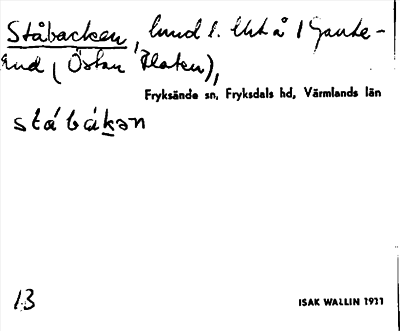 Ståbacken, lund l. Utå 1 Gaute-
End (Östan Flaten),
Fryksände sn, Fryksdals hd, Värmlands län
stábákən
13
ISAK WALLIN 1921